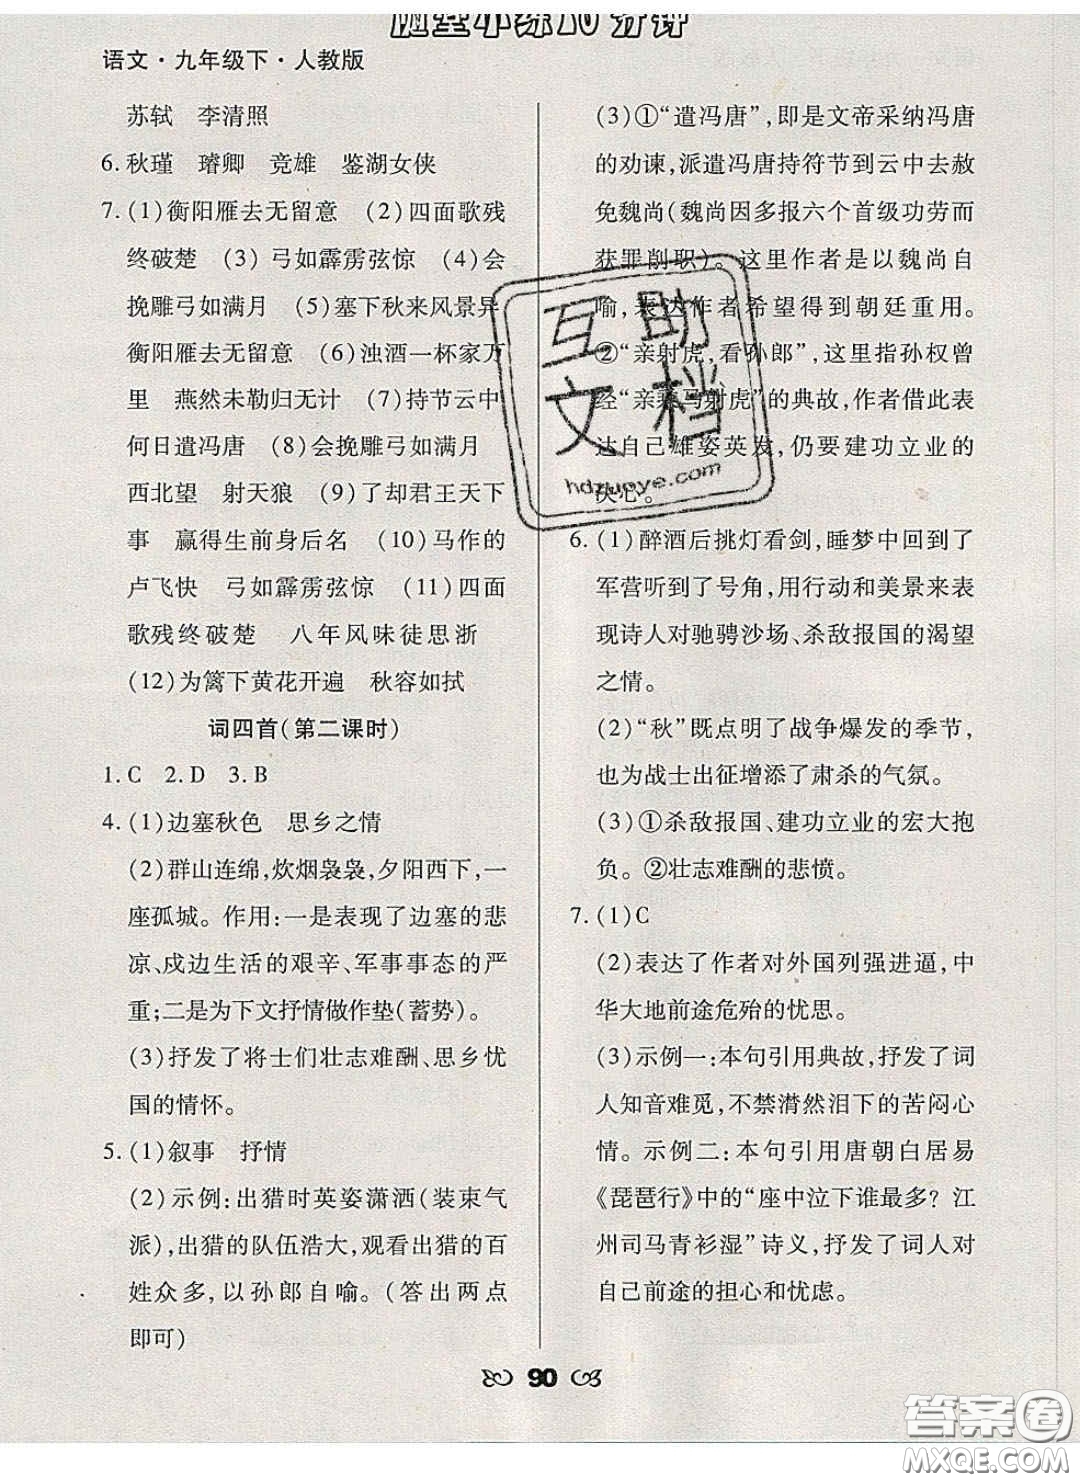 随堂小练10分钟
语文·九年级下·人教版
苏轼 李清照
6. 秋瑾 璿卿 竞雄 鉴湖女侠
7. (1)衡阳雁去无留意 (2)四面歌残
终破楚 (3)弓如霹雳弦惊 (4)会
挽雕弓如满月 (5)塞下秋来风景异
衡阳雁去无留意 (6)浊酒一杯家万
里 燕然未勒归无计 (7)持节云中
何日遣冯唐 (8)会挽雕弓如满月
西北望 射天狼 (9)了却君王天下
事 赢得生前身后名 (10)马作的
卢飞快 弓如霹雳弦惊 (11)四面
歌残终破楚 八年风味徒思浙
(12)为篱下黄花开遍 秋容如拭
词四首(第二课时)
1. C 2. D 3. B
4. (1)边塞秋色 思乡之情
(2)群山连绵,炊烟袅袅,夕阳西下,一
座孤城。作用:一是表现了边塞的悲
凉、戍边生活的艰辛、军事事态的严
重;二是为下文抒情做作垫(蓄势)。
(3)抒发了将士们壮志难酬、思乡忧
国的情怀。
5. (1)叙事 抒情
(2)示例:出猎时英姿潇洒(装束气
派),出猎的队伍浩大,观看出猎的百
姓众多,以孙郎自喻。(答出两点
即可)
(3)①“遣冯唐”,即是文帝采纳冯唐
的劝谏,派遣冯唐持符节到云中去赦
免魏尚(魏尚因多报六个首级功劳而
获罪削职)。这里作者是以魏尚自
喻,表达作者希望得到朝廷重用。
②“亲射虎,看孙郎”,这里指孙权曾
经“亲乘马射虎”的典故,作者借此表
达自己雄姿英发,仍要建功立业的
决心。
6. (1)醉酒后挑灯看剑,睡梦中回到了
军营听到了号角,用行动和美景来表
现诗人对驰骋沙场、杀敌报国的渴望
之情。
(2)“秋”既点明了战争爆发的季节,
也为战士出征增添了肃杀的气氛。
(3)①杀敌报国、建功立业的宏大抱
负。②壮志难酬的悲愤。
7. (1)C
(2)表达了作者对外国列强进逼,中
华大地前途危殆的忧思。
(3)示例一:本句引用典故,抒发了词
人知音难觅,不禁潸然泪下的苦闷心
情。示例二:本句引用唐朝白居易
《琵琶行》中的“座中泣下谁最多?江
州司马青衫湿”诗义,抒发了词人对
自己前途的担心和忧虑。
互助
文档
hdzuoye.com
90
答案圈
MXQE.COM